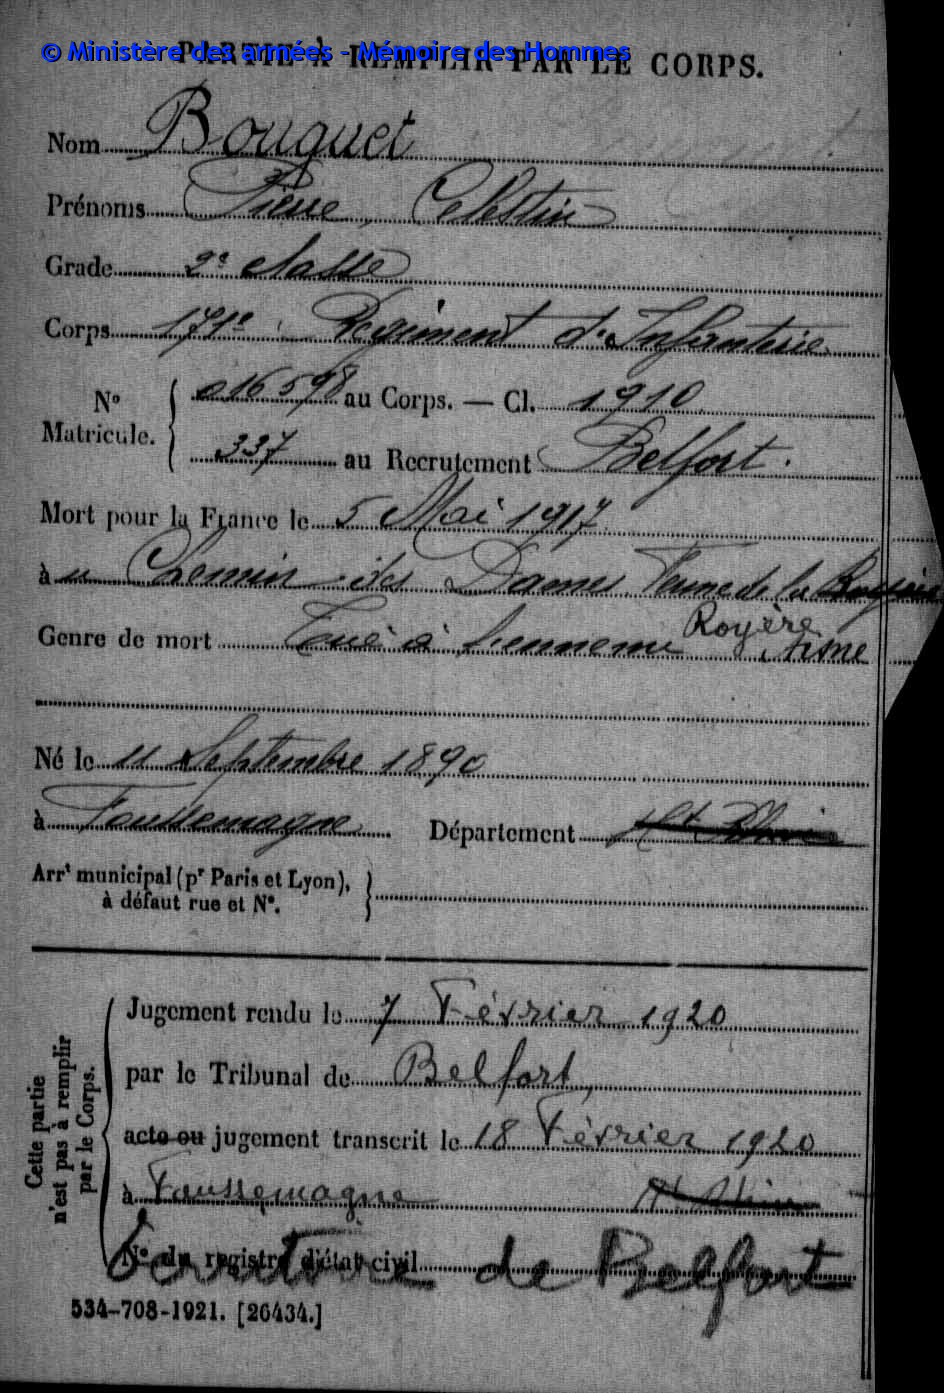 © Ministère des armées - Mémoire des Hommes
PARTIE À REMPLIR PAR LE CORPS.
Nom Bouquet
Prénoms Pierre, Celestin
Grade 2e classe
Corps 171e Régiment d'Infanterie
No Matricule. 016598 au Corps. — Cl. 1910
337 au Recrutement Belfort.
Mort pour la France le 5 Mai 1917
à u Chemin des Dames Ferme de la
Royère
Genre de mort Tué à l'ennemi Aisne
Né le 11 Septembre 1890
à Foussemagne Département Ht Rhin
Arrt municipal (pr Paris et Lyon),
à défaut rue et No.
Cette partie
n'est pas à remplir
par le Corps.
Jugement rendu le 7 Février 1920
par le Tribunal de Belfort,
acte ou jugement transcrit le 18 Février 1920
à Foussemagne Ht Rhin
No du registre d'état civil
Territoire de Belfort
534-708-1921. [26434.]